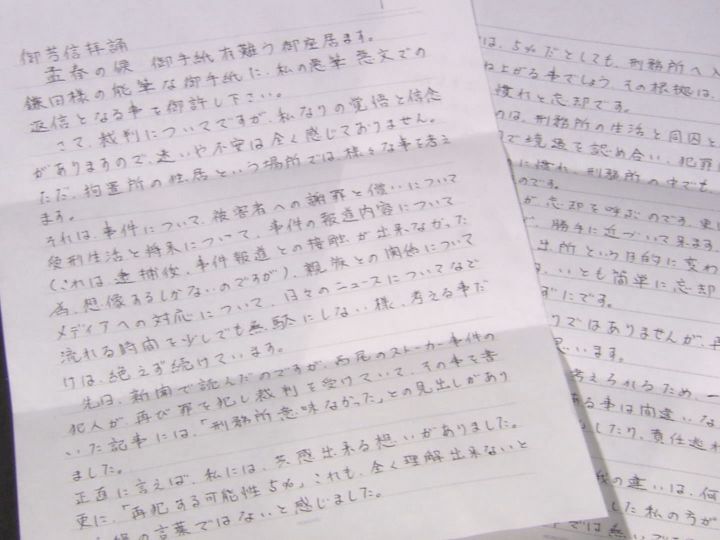 御芳信拝誦
孟春の候 御手紙有難う御座居ます。
鎌田様の能筆な御手紙に、私の悪筆悪文での
返信となる事を御許し下さい。
さて、裁判についてですが、私なりの覚悟と信念
がありますので、迷いや不安は全く感じておりません。
ただ、拘置所の独居という場所では、様々な事を考え
ます。
それは、事件について、被害者への謝罪と償いについて
受刑生活と将来について、事件の報道内容について
(これは、逮捕後、事件報道との接触が出来なかった
為、想像するしかないのですが)、親族との関係について
メディアへの対応について、日々のニュースについてなど
流れる時間を少しでも無駄にしない様、考える事だ
けは、絶えず続けています。
先日、新聞で読んだのですが、西尾のストーカー事件の
犯人が、再び罪を犯し裁判を受けていて、その事を書
いた記事には、「刑務所意味なかった」との見出しがあり
ました。
正直に言えば、私には、共感出来る想いがありました。
更に、「再犯する可能性5%」これも、全く理解出来ないと
の言葉ではないと感じました。
は、5%だとしても、刑務所へ入
ね上がる事でしょう。その根拠は、
慣れと忘却です。
のは、刑務所の生活と同囚と
で境遇を認め合い、犯罪
に慣れ、刑務所の中でも
のです。
が忘却を呼ぶのです。更に
、勝手に近づいて来ます。
出所という目的に変わ
は、いとも簡単に忘却
ずにです。
りではありませんが、再
思います。
考えられるため、一
ある事は間違いな
したり、責任逃れ
の違いは、何
した私の方が
では無いで